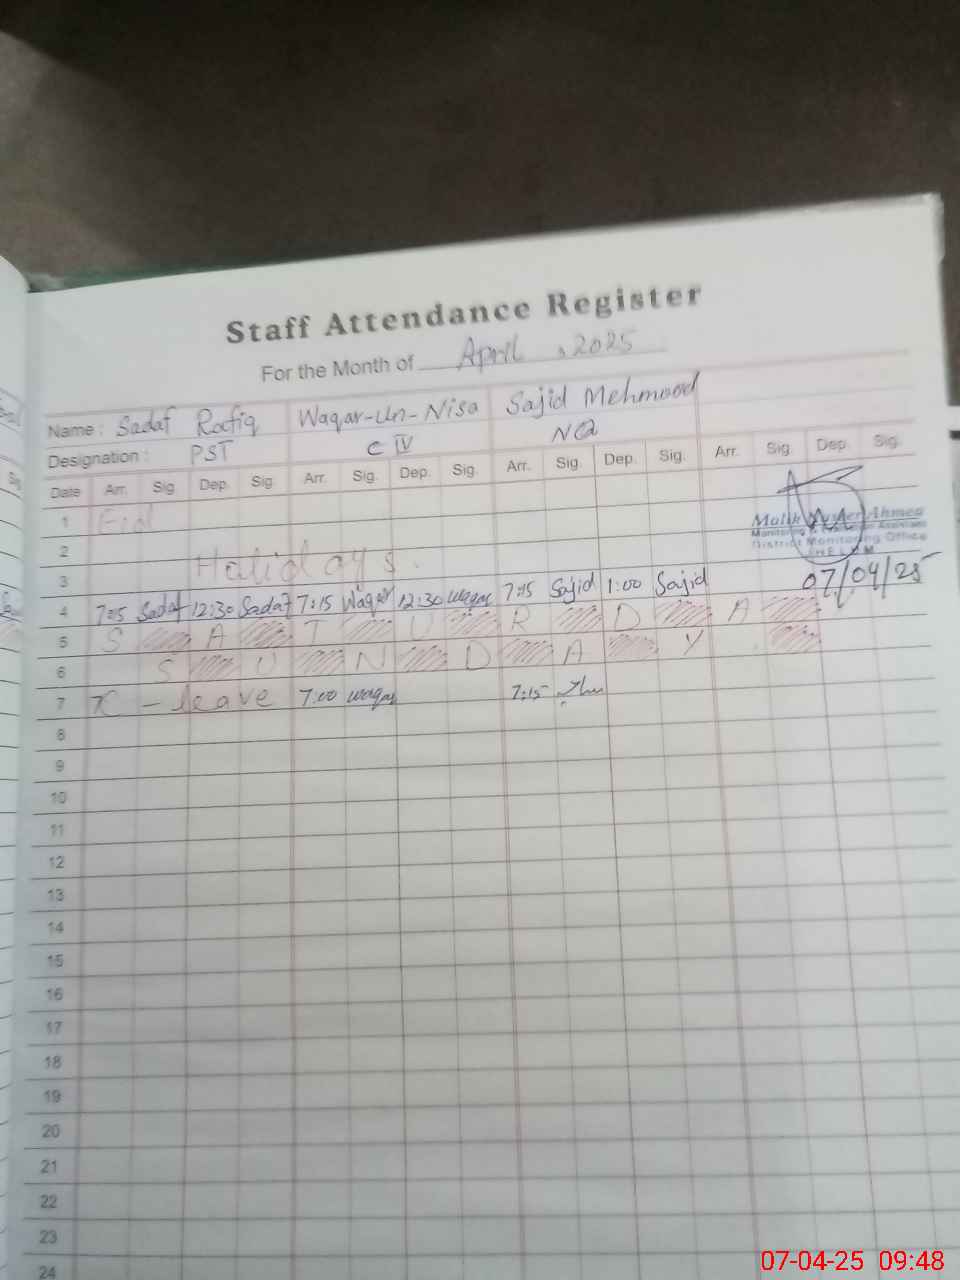 Staff Attendance Register
For the Month of April, 2025
Name: Sadaf Rafiq Waqar-Un-Nisa Sajid Mehmood
Designation: PST C IV NQ
Date Arr. Sig Dep. Sig. Arr. Sig. Dep. Sig. Arr. Sig. Dep. Sig. Arr. Sig. Dep. Sig.
1 Eid
2 Halidays.
3
Malik Ahmed
Monitoring &
District Monitoring Office
JHELUM
07/04/25
4 7:15 Sadaf 12:30 Sadaf 7:15 Waqar 12:30 waqar 7:15 Sajid 1:00 Sajid
5 S A T U R D A
6 S U N D A Y
7 C - leave 7:00 waqar 7:15
8
9
10
11
12
13
14
15
16
17
18
19
20
21
22
23
24
07-04-25 09:48